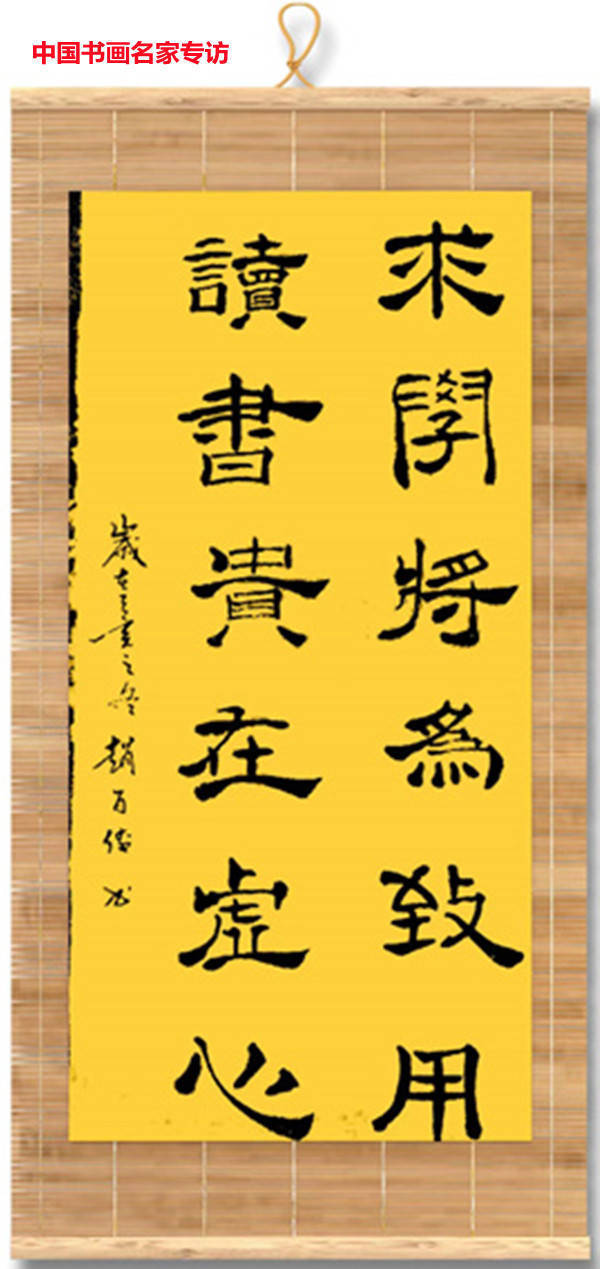 中国书画名家专访
求學將為致用
讀書貴在虛心
歲在之冬 趙百 书